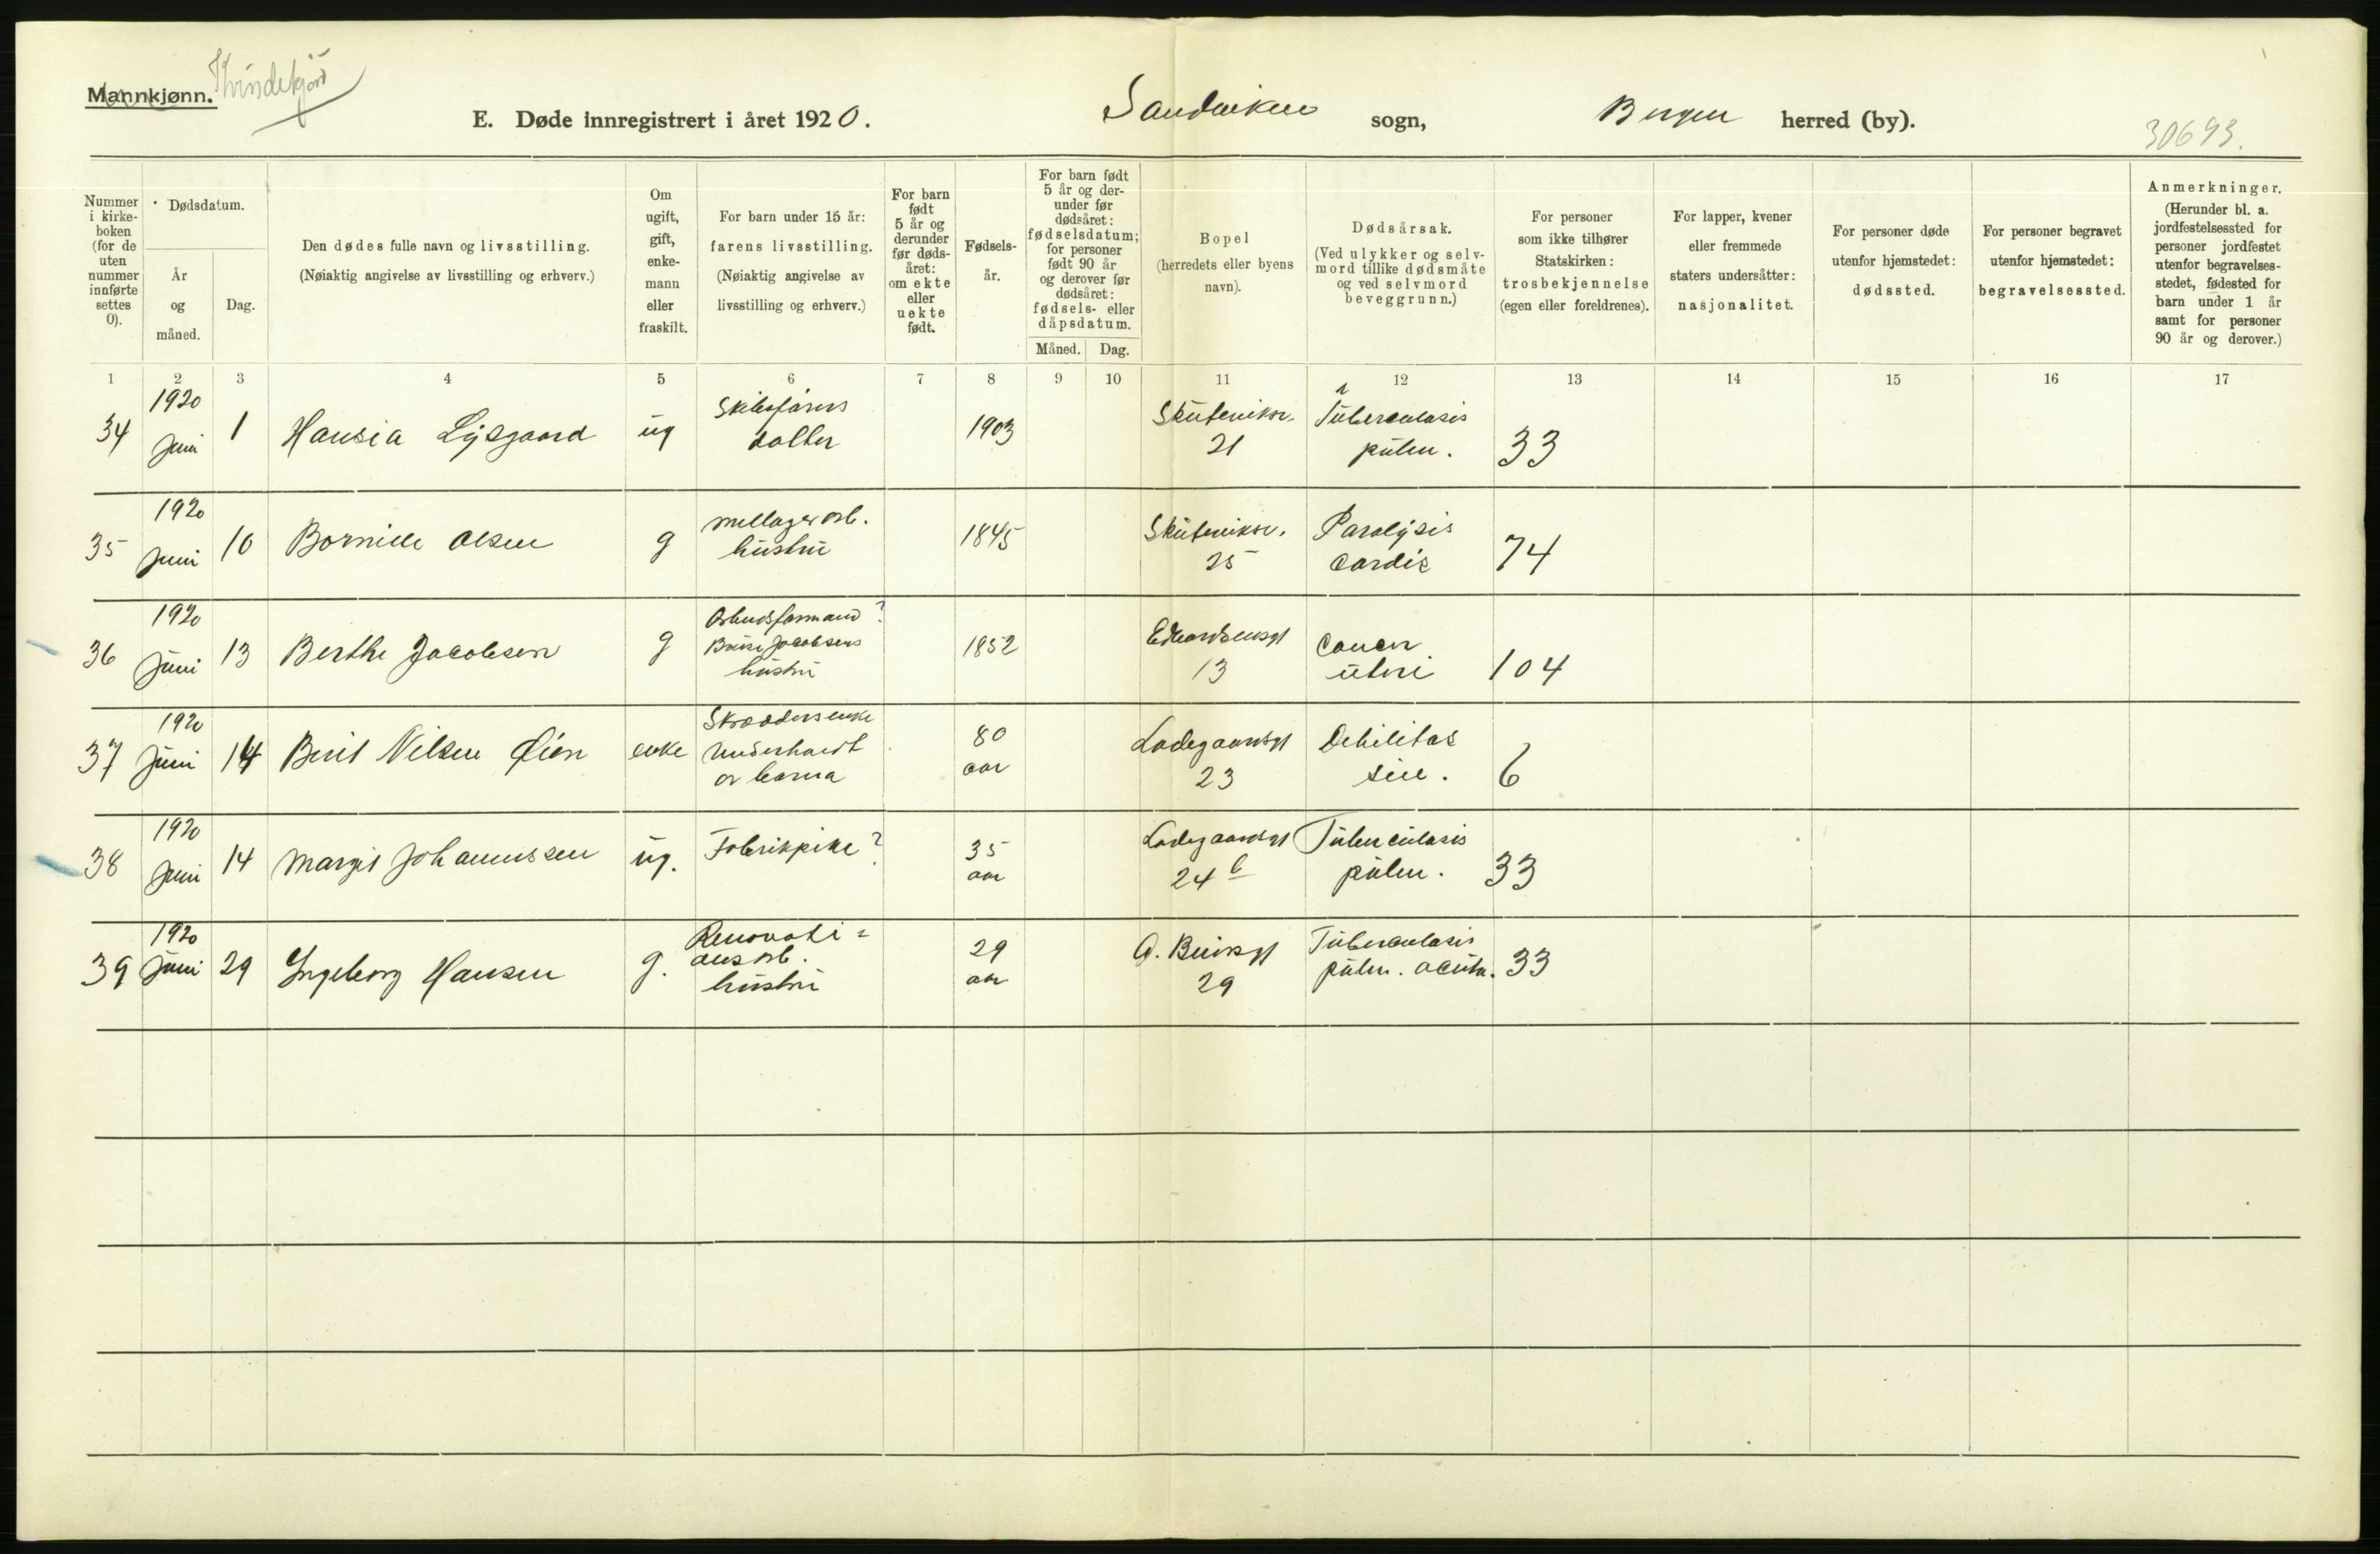 Mannkjønn. Kvindekjøn
E. Døde innregistrert i året 1920. Sandviken sogn, Bergen herred (by).
30693.
Nummer i kirke-boken (for de uten nummer innførte settes 0).
Dødsdatum.
År og måned.
Dag.
Den dødes fulle navn og livsstilling.
(Nøiaktig angivelse av livsstilling og erhverv.)
Om ugift, gift, enke-mann eller fraskilt.
For barn under 15 år: farens livsstilling.
(Nøiaktig angivelse av livsstilling og erhverv.)
For barn født 5 år og derunder før døds-året: om ekte eller uekte født.
Fødsels-år.
For barn født 5 år og der-under før dødsåret: fødselsdatum; for personer født 90 år og derover før dødsåret: fødsels- eller dåpsdatum.
Måned. Dag.
Bopel (herredets eller byens navn).
Dødsårsak.
(Ved ulykker og selv-mord tillike dødsmåte og ved selvmord beveggrunn.)
For personer som ikke tilhører Statskirken: trosbekjennelse (egen eller foreldrenes).
For lapper, kvener eller fremmede staters undersåtter: nasjonalitet.
For personer døde utenfor hjemstedet: dødssted.
For personer begravet utenfor hjemstedet: begravelsessted.
Anmerkninger.
(Herunder bl. a. jordfestelsessted for personer jordfestet utenfor begravelses-stedet, fødested for barn under 1 år samt for personer 90 år og derover.)
1 2 3 4 5 6 7 8 9 10 11 12 13 14 15 16 17
34 1920 Juni 1 Hansia Lysgaard ug Skibsførers datter 1903 Skuteviksv. 21 Tuberculosis pulm. 33
35 1920 Juni 10 Olsen g hustru 1845 Skuteviksv. 25 Paralysis cordis 74
36 1920 Juni 13 Berthe Jacobsen g Arbeidsformand ? Jacobsens hustru 1852 Edvardsensgt 13 Cancer uteri 104
37 1920 Juni 14 Berit Nilsen Øien enke Skræddersenke Underholdt av barna 80 aar Ladegaardsgt 23 Debilitas sen. 6
38 1920 Juni 14 Margit Johannessen ug. Fabrikpike ? 35 aar Ladegaardsgt 24 b Tuberculosis pulm. 33
39 1920 Juni 29 Ingeborg Hansen g. Renovati= onsarb. hustru 29 aar 29 Tuberculosis pulm. acuta. 33